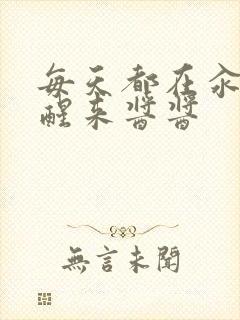 每天都在汆
醒来酱酱
無言未聞